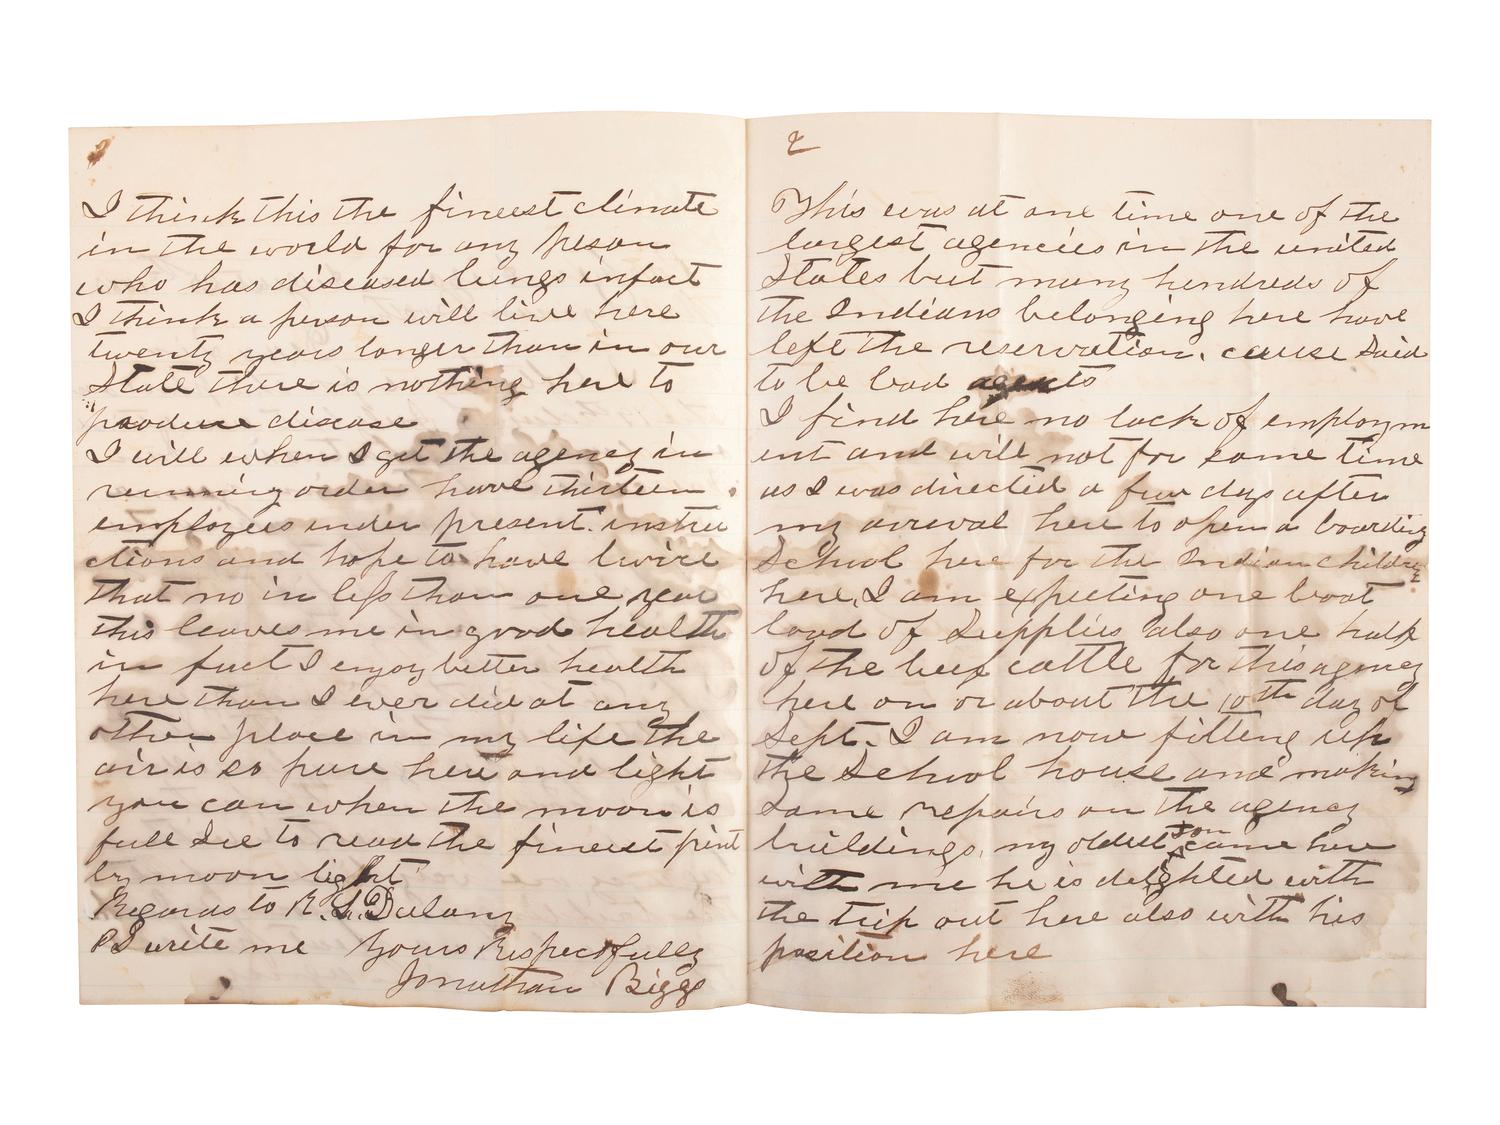 I think this the fineest climate
in the world for any person
who has diseased lungs infact
I think a person will live here
twenty years longer than in our
State there is nothing here to
produce disease
I will when I get the agency in
running order have thirteen
employees under present. instru
ctions and hope to have twice
that no in less than one year
this leaves me in good health
in fact I enjoy better health
here than I ever did at any
other place in my life the
air is so pure here and light
you can when the moon is
full See to read the fineest print
by moon light
Regards to R. S. Dulany
PS write me Yours Respectfully
Jonathan Biggs
2
This was at one time one of the
largest agencies in the united
States but many hundreds of
the Indians belonging here have
left the reservation. cause Said
to be bad agents
I find here no lack of employm
ent and will not for some time
as I was directed a few days after
my arrival here to open a boarding
School here for the Indian children
here, I am expecting one boat
load of Supplies also one half
of the beef cattle for this agency
here on or about the 10th day of
Sept. I am now fitting up
the School house and making
some repairs on the agency
buildings, my oldest son came here
with me he is delighted with
the trip out here also with his
position here